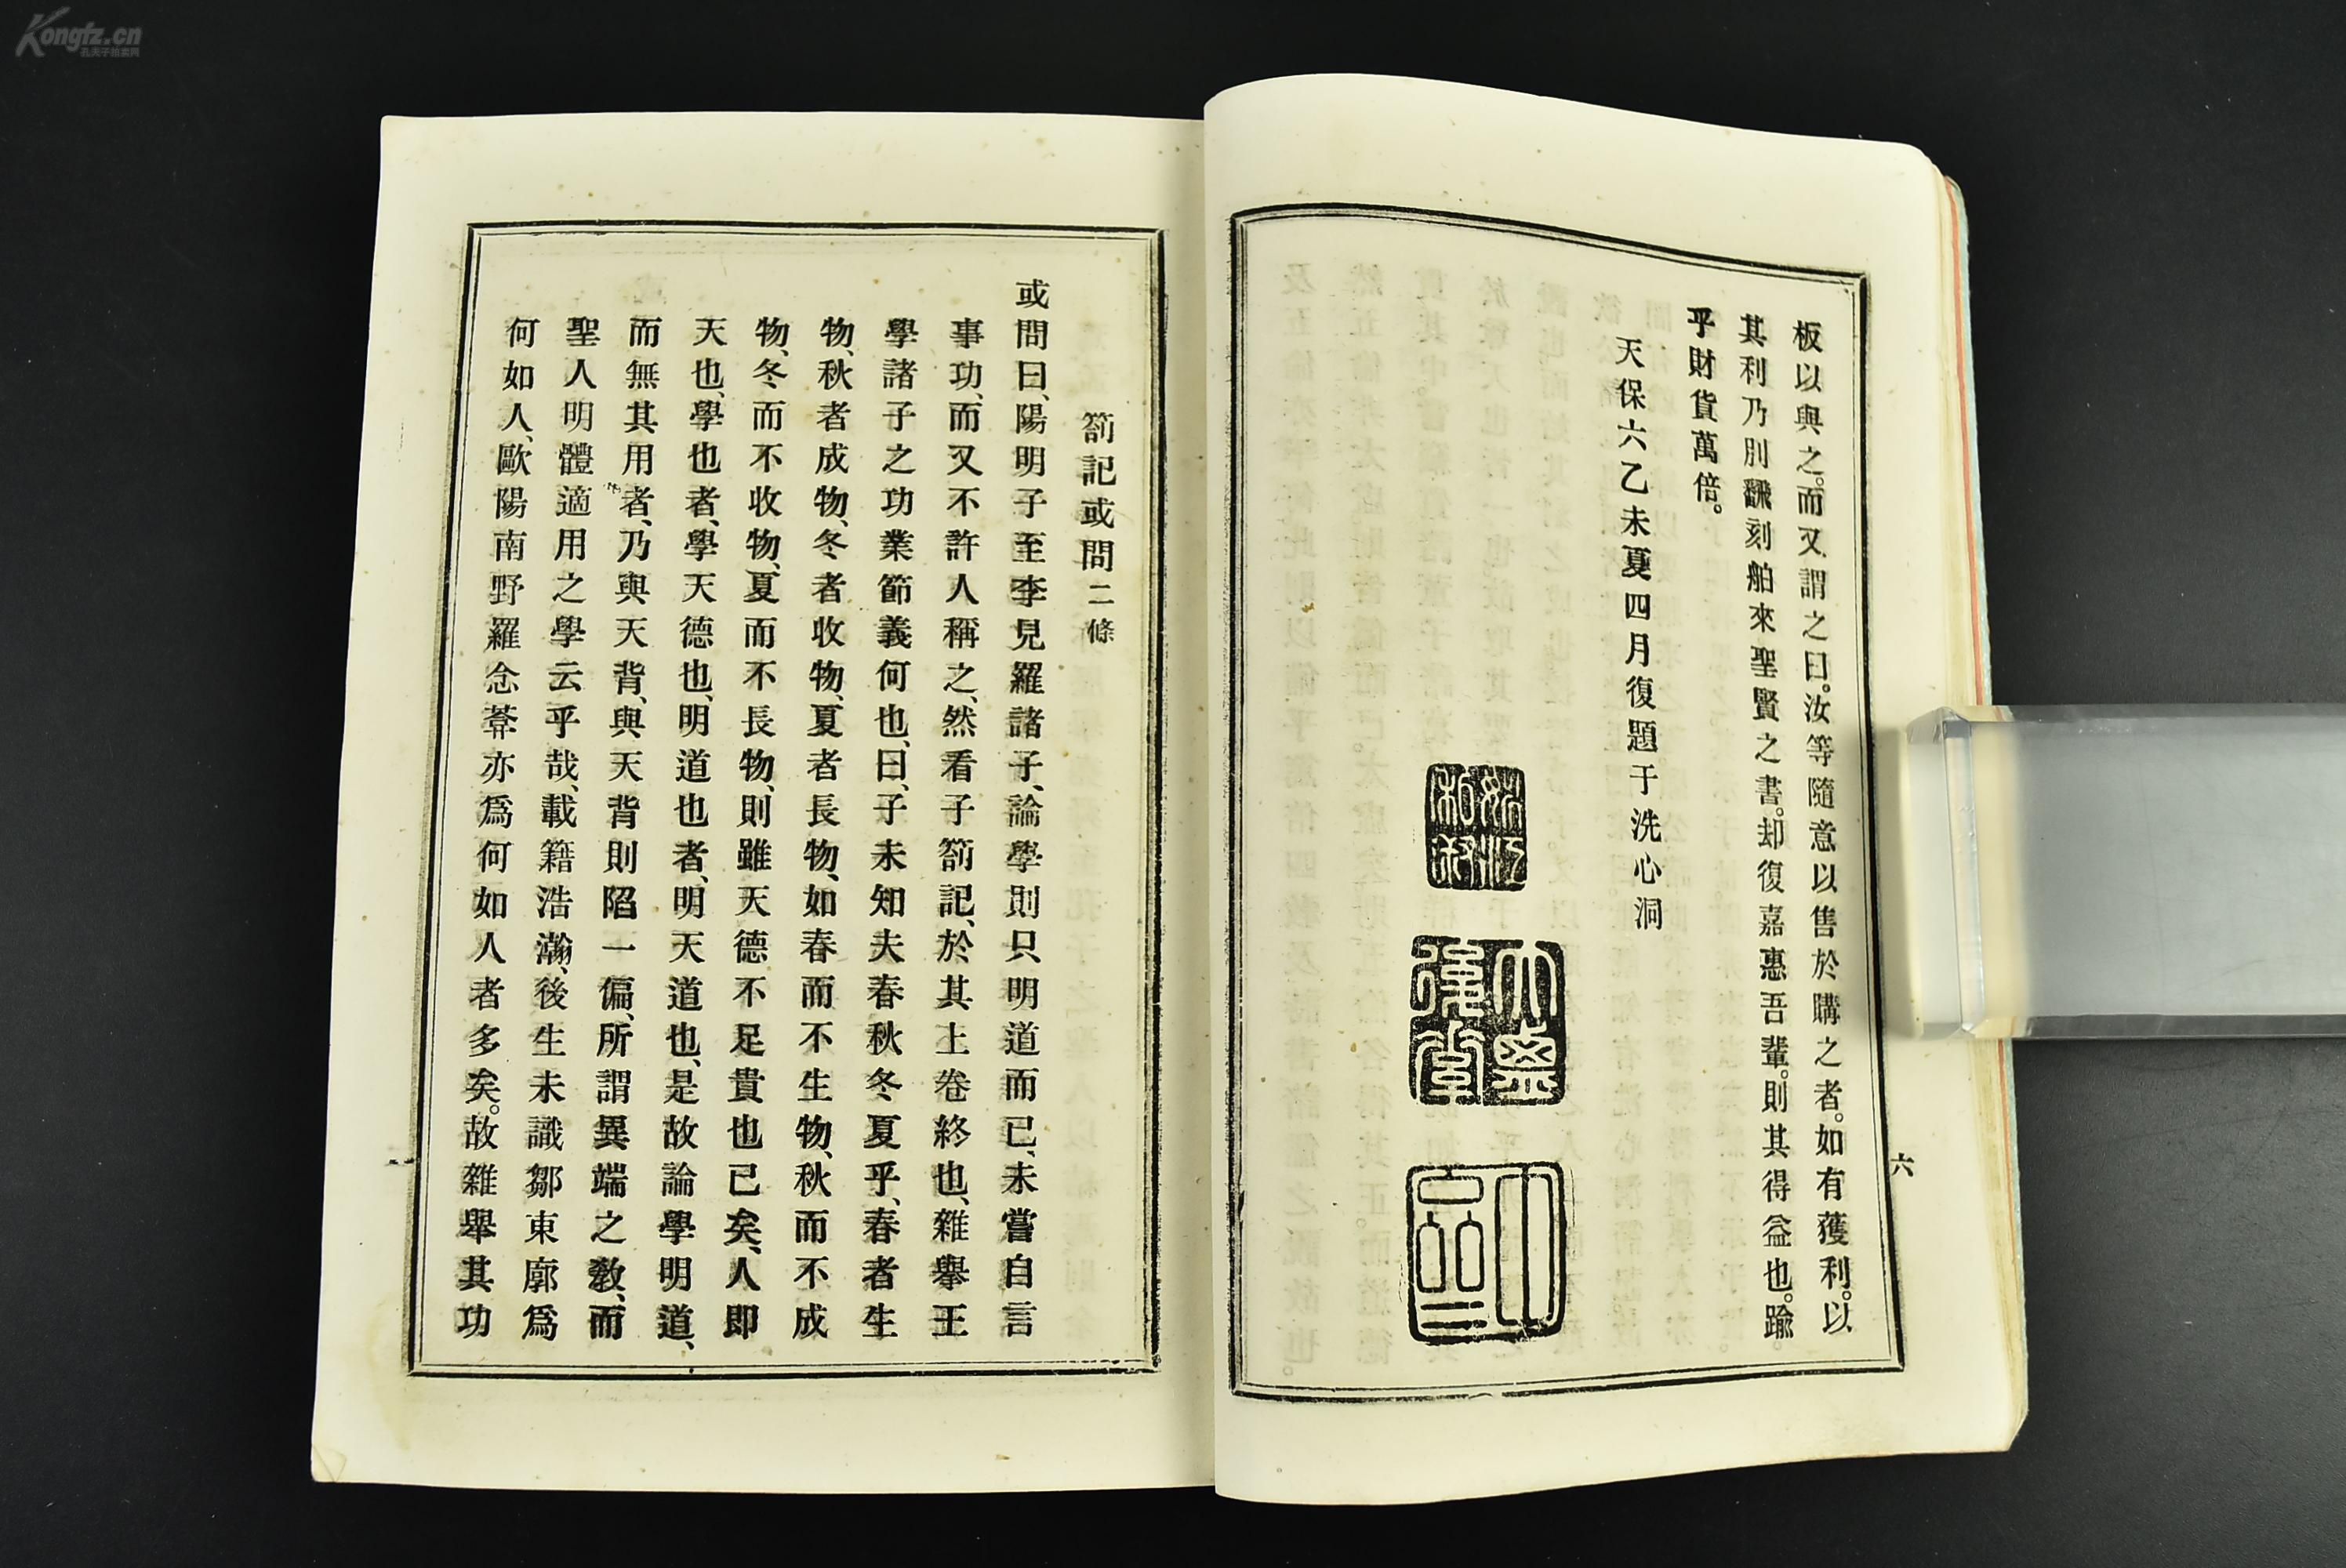 Kongfz.cn
孔夫子拍卖网
板以與之。而又謂之曰。汝等隨意以售於購之者。如有獲利。以
其利乃別飜刻舶來聖賢之書。却復嘉惠吾輩。則其得益也。踰
乎財貨萬倍。
天保六乙未夏四月復題于洗心洞
六
劄記或問二條
或問曰、陽明子至李見羅諸子、論學則只明道而已、未嘗自言
事功、而又不許人稱之、然看子劄記、於其上卷終也、雜擧王
學諸子之功業節義何也、曰、子未知夫春秋冬夏乎、春者生
物、秋者成物、冬者收物、夏者長物、如春而不生物、秋而不成
物、冬而不收物、夏而不長物、則雖天德不足貴也已矣、人即
天也、學也者、學天德也、明道也者、明天道也、是故論學明道、
而無其用者、乃與天背、與天背則陷一偏、所謂異端之敎、而
聖人明體適用之學云乎哉、載籍浩瀚、後生未識鄒東廓爲
何如人、歐陽南野羅念菴亦爲何如人者多矣。故雜舉其功